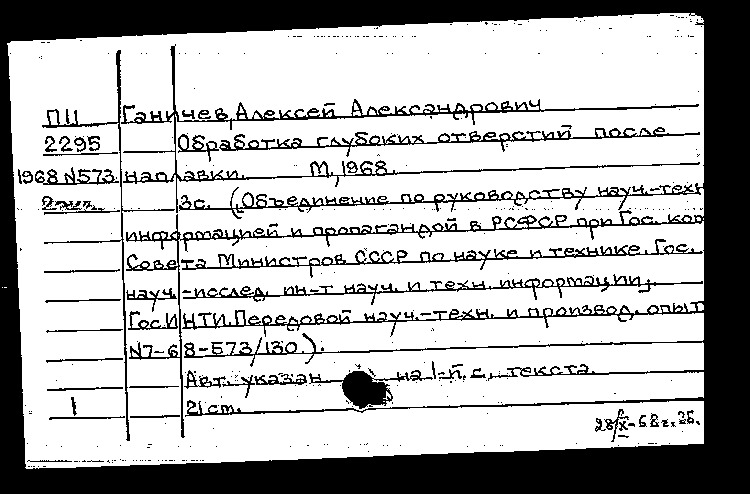 П11 Ганичев, Алексей Александрович
2295 Обработка глубоких отверстий после
1968 N573 наплавки. М, 1968.
3с. (Объединение по руководству науч.-техн
информацией и пропагандой в РСФСР при Гос. ком
Совета Министров СССР по науке и технике. Гос.
науч.-послед. ин-т науч. и техн. информации,
ГосИНТИ. Передовой науч.-техн. и производ. опыт
N7-68-573/130.).
Авт. указан на 1-й с. текста.
1 21 см.
28/X-68г.